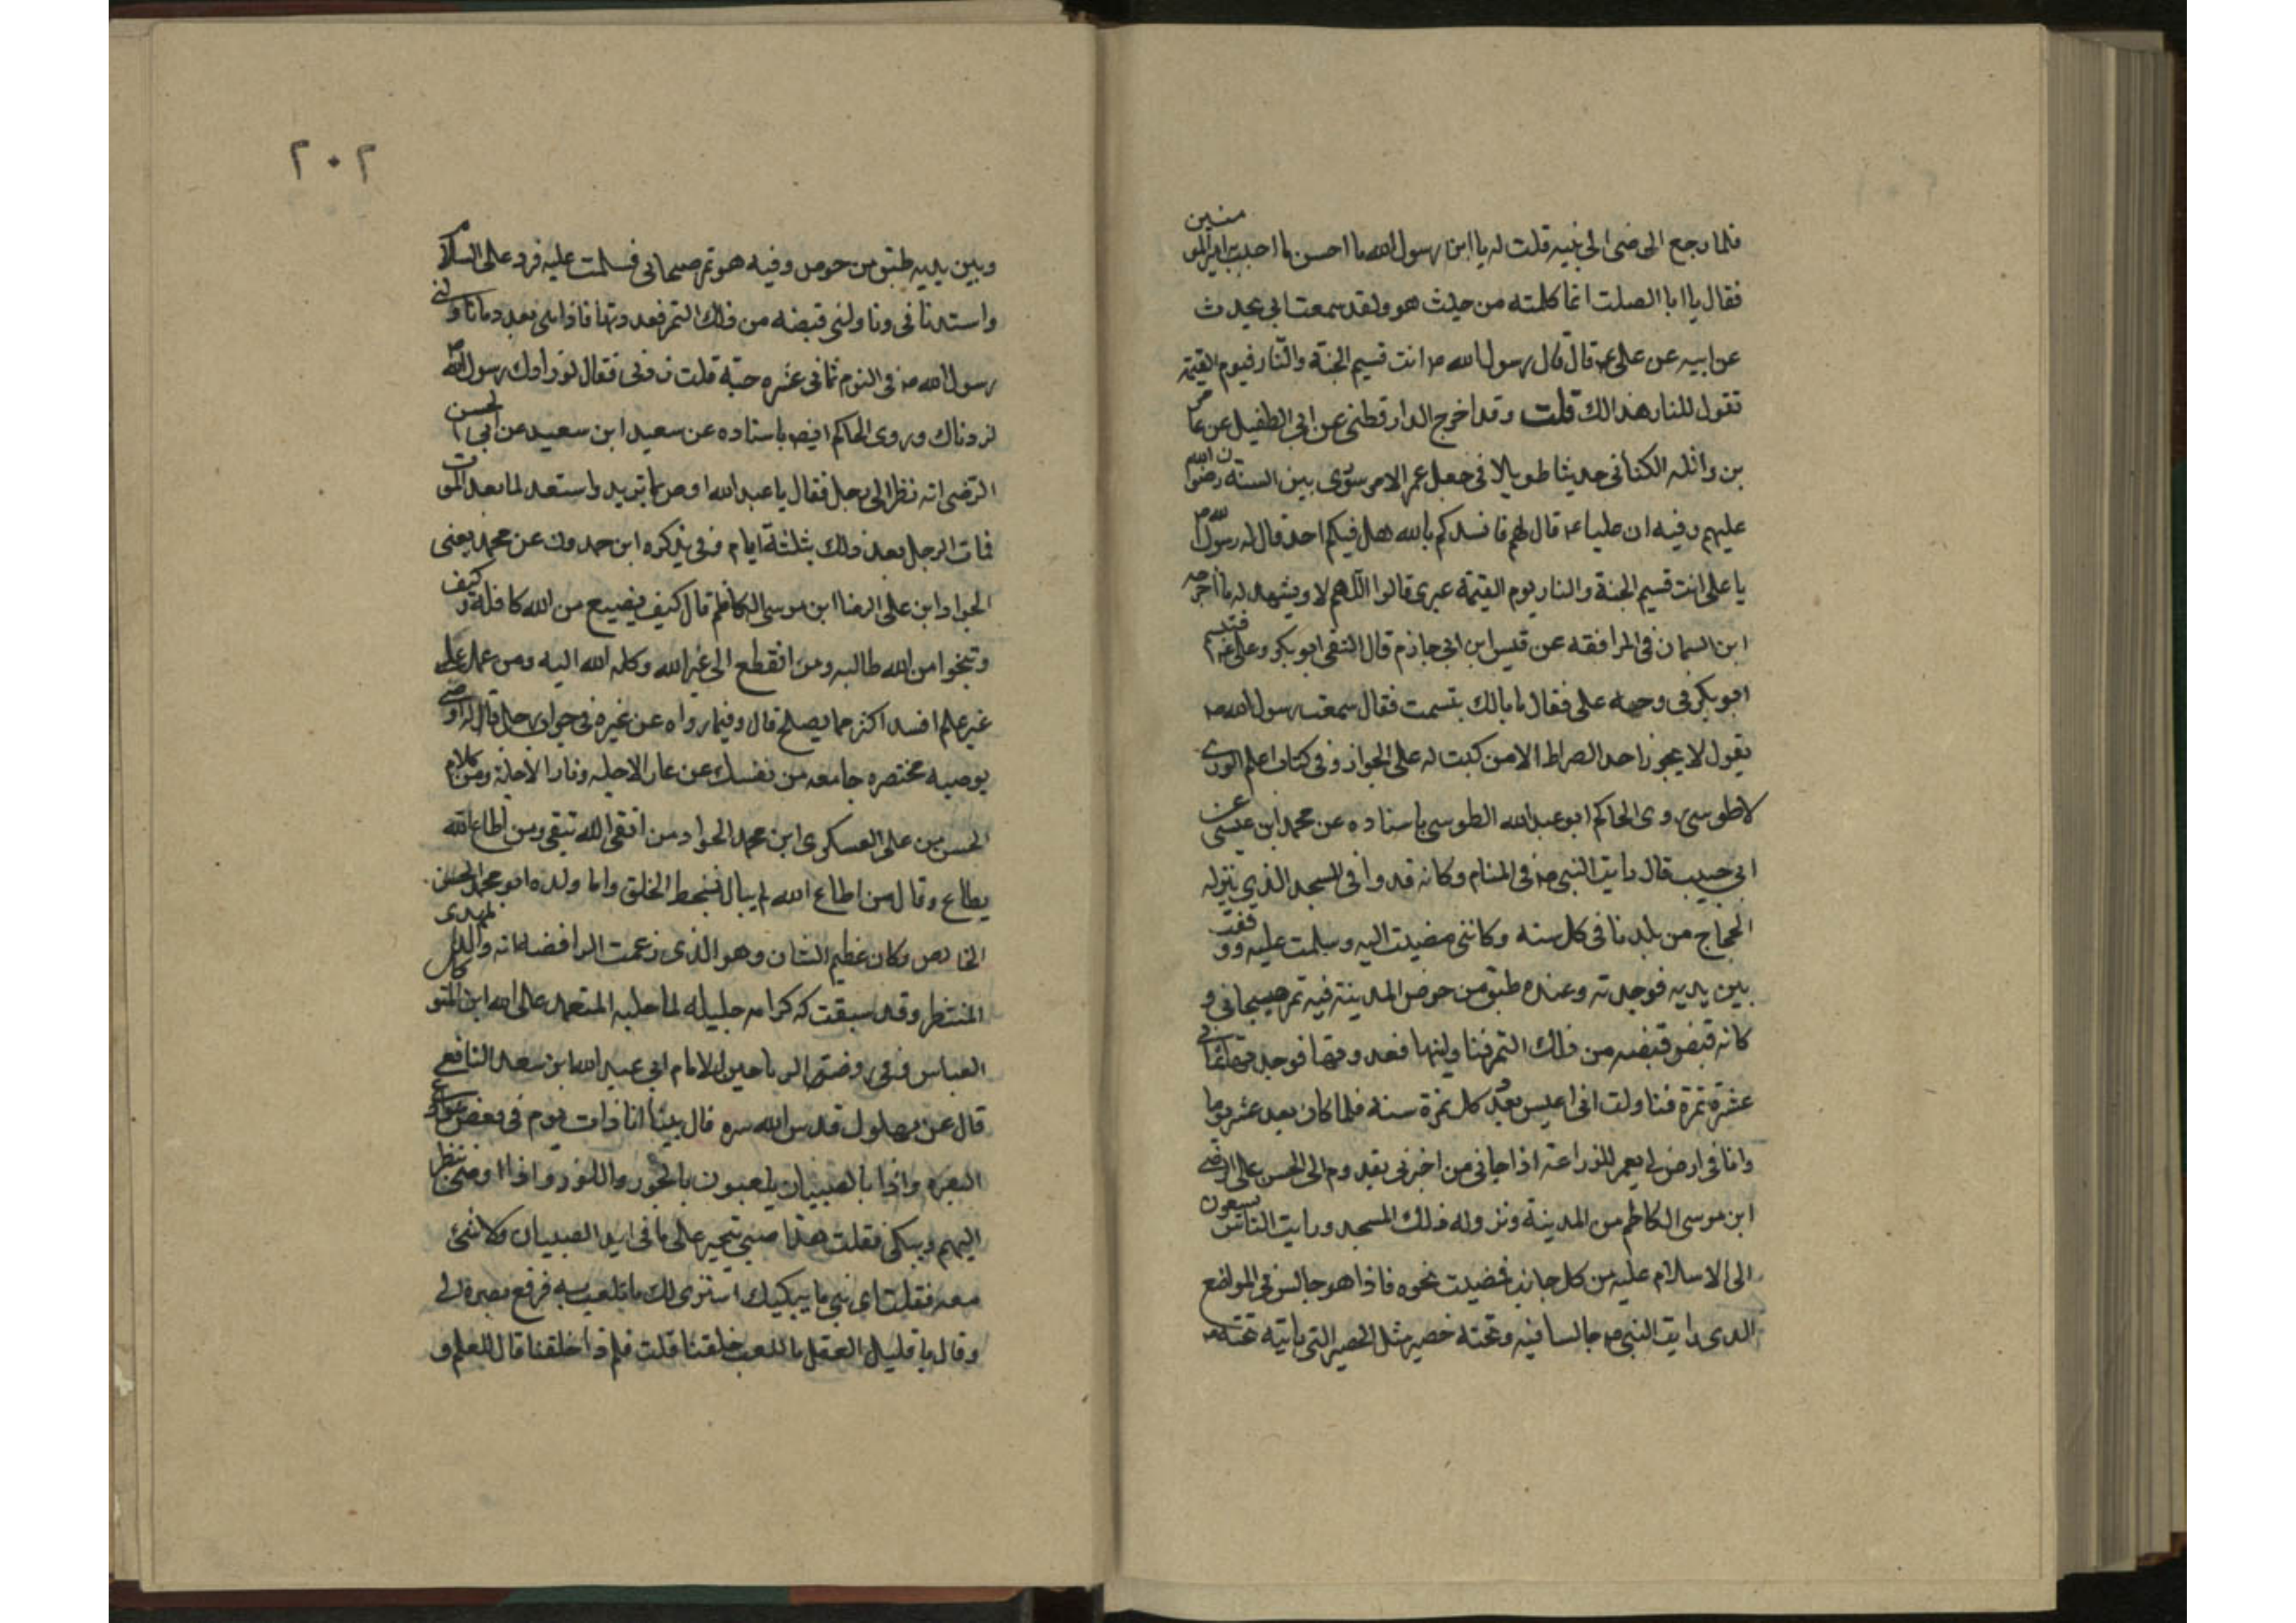 فلما رجع الرضى الى بيته قلت له يا ابن رسول الله ما احسن ما اجبت امير المو
منين
فقال يا ابا الصلت انما كلمته من حيث هو ولقد سمعت ابي يحدث
عن ابيه عن على عم قال قال رسول الله ص انت قسيم الجنة والنار فيوم القيمة
تقول للنار هذا لك قلت وقد اخرج الدار قطنى عن ابى الطفيل عن عا
مر
بن واثله الكنانى حديثا طويلا فى جعل عمر الامر شورى بين الستة رضوا
ن الله
عليهم وفيه ان عليا عم قال لهم فانشدكم بالله هل فيكم احد قال له رسول
الله ص
يا على انت قسيم الجنة والنار يوم القيمة غيرى قالوا اللهم لا ويشهد له ما اخرجه
ابن السمان فى المرافقه عن قيس ابن ابى حازم قال التقى ابو بكر وعلى عم
فتبسم
ابو بكر فى وجهه على فقال ما بالك بتسمت فقال سمعت رسول الله ص
يقول لا يجوز احد الصراط الا من كبت له على الجواز وفى كتاب اعلم الورى
لاطوسى روى الحاكم ابو عبد الله الطوسى باسناده عن محمد ابن عيسى
عن
ابى حبيب قال رايت النبى ص فى المنام وكانه قد وافى المسجد الذى ينزله
الحجاج من بلدنا فى كل سنه وكاننى مضيت اليه وسلمت عليه وو
قفت
بين يديه فوجدته وعنده طبق من خوص المدينة فيه تمر صيحانى و
كانه قبض قبضه من ذلك التمر فناولنيها فعددتها فوجدتها ثما
نى
عشرة تمرة فتاولت انى اعيس بعد كل تمرة سنة فلما كان بعد عشر يوما
وانا فى ارض لى يعمر للزراعة اذا جانى من اخبرنى بقدوم ابى الحسن على الرضى
ابن موسى الكاظم من المدينة ونزوله ذلك المسجد ورايت الناس
يسعون
الى الاسلام عليه من كل جانب فمضيت نحوه فاذا هو جالس فى المواضع
الذى رايت النبى ص جالسا فيه وتحته حصير مثل الحصير التى رايته تحته ص
٢٠٢
وبين يديه طبق من خوص وفيه هو تمر صيحانى فسلمت عليه فرد على السلام
واستدنانى وناولنى قبضه من ذلك التمر فعددتها فاذا هى بعدد ما ناو
لنى
رسول الله ص فى النوم ثمانى عشره حبة قلت زدنى فقال لو زادك رسول الله
ص
لزدناك وروى الحاكم ايضا باسناده عن سعيد ابن سعيد عن ابى ا
لحسن
الرضى انه نظر الى رجل فقال يا عبد الله اوص بما تريد واستعد لما بعد المو
ت
فمات الرجل بعد ذلك بثلثة ايام وفى تذكره ابن حمدون عن محمد يعنى
الجواد ابن على الرضا ابن موسى الكاظم قال كيف يضيع من الله كافله و
كيف
وينجوا من الله طالبه ومن انقطع الى غير الله وكله الله اليه ومن عمل على
غير علم افسد اكثر مما يصلح قال وفيما رواه عن غيره فى جواب رجل قال له او
صنى
بوصيه مختصره جامعه من نفسك عن عار الاجله ونار الاجلة ومن كلام
الحسن بن على العسكرى ابن محمد الجواد من اتقى الله تيقى ومن اطاع الله
يطاع وقال من اطاع الله لم يبال بسخط الخلق واما ولده ابو محمد الحسن
الخالص وكان عظيم الشان وهو الذى زعمت الرافضه انه والد ا
لمهدى
المنتظر وقد سبقت له كرامه جليله لما حبسه المتعمد على الله ابن المتو
كل
العباس وفى روضة الرياحين للامام ابى عبد الله ابن سعد اليافعى
قال عن بهلول قدس الله سره قال بينا انا ذات يوم فى بعض شوارع
البصره واذا بالصبيان يلعبون بالجوز واللوز واذا اوصبى ينظر
اليهم ويبكى فقلت هذا صبى يتحير على ما فى ايد الصبيان ولا شئ
معه فقلت اى بنى ما يبكيك اشترى لك ما تلعب به فرفع بصره الى
وقال يا قليل العقل ما للعب خلقنا قلت فلم ذا خلقنا قال للعلم و